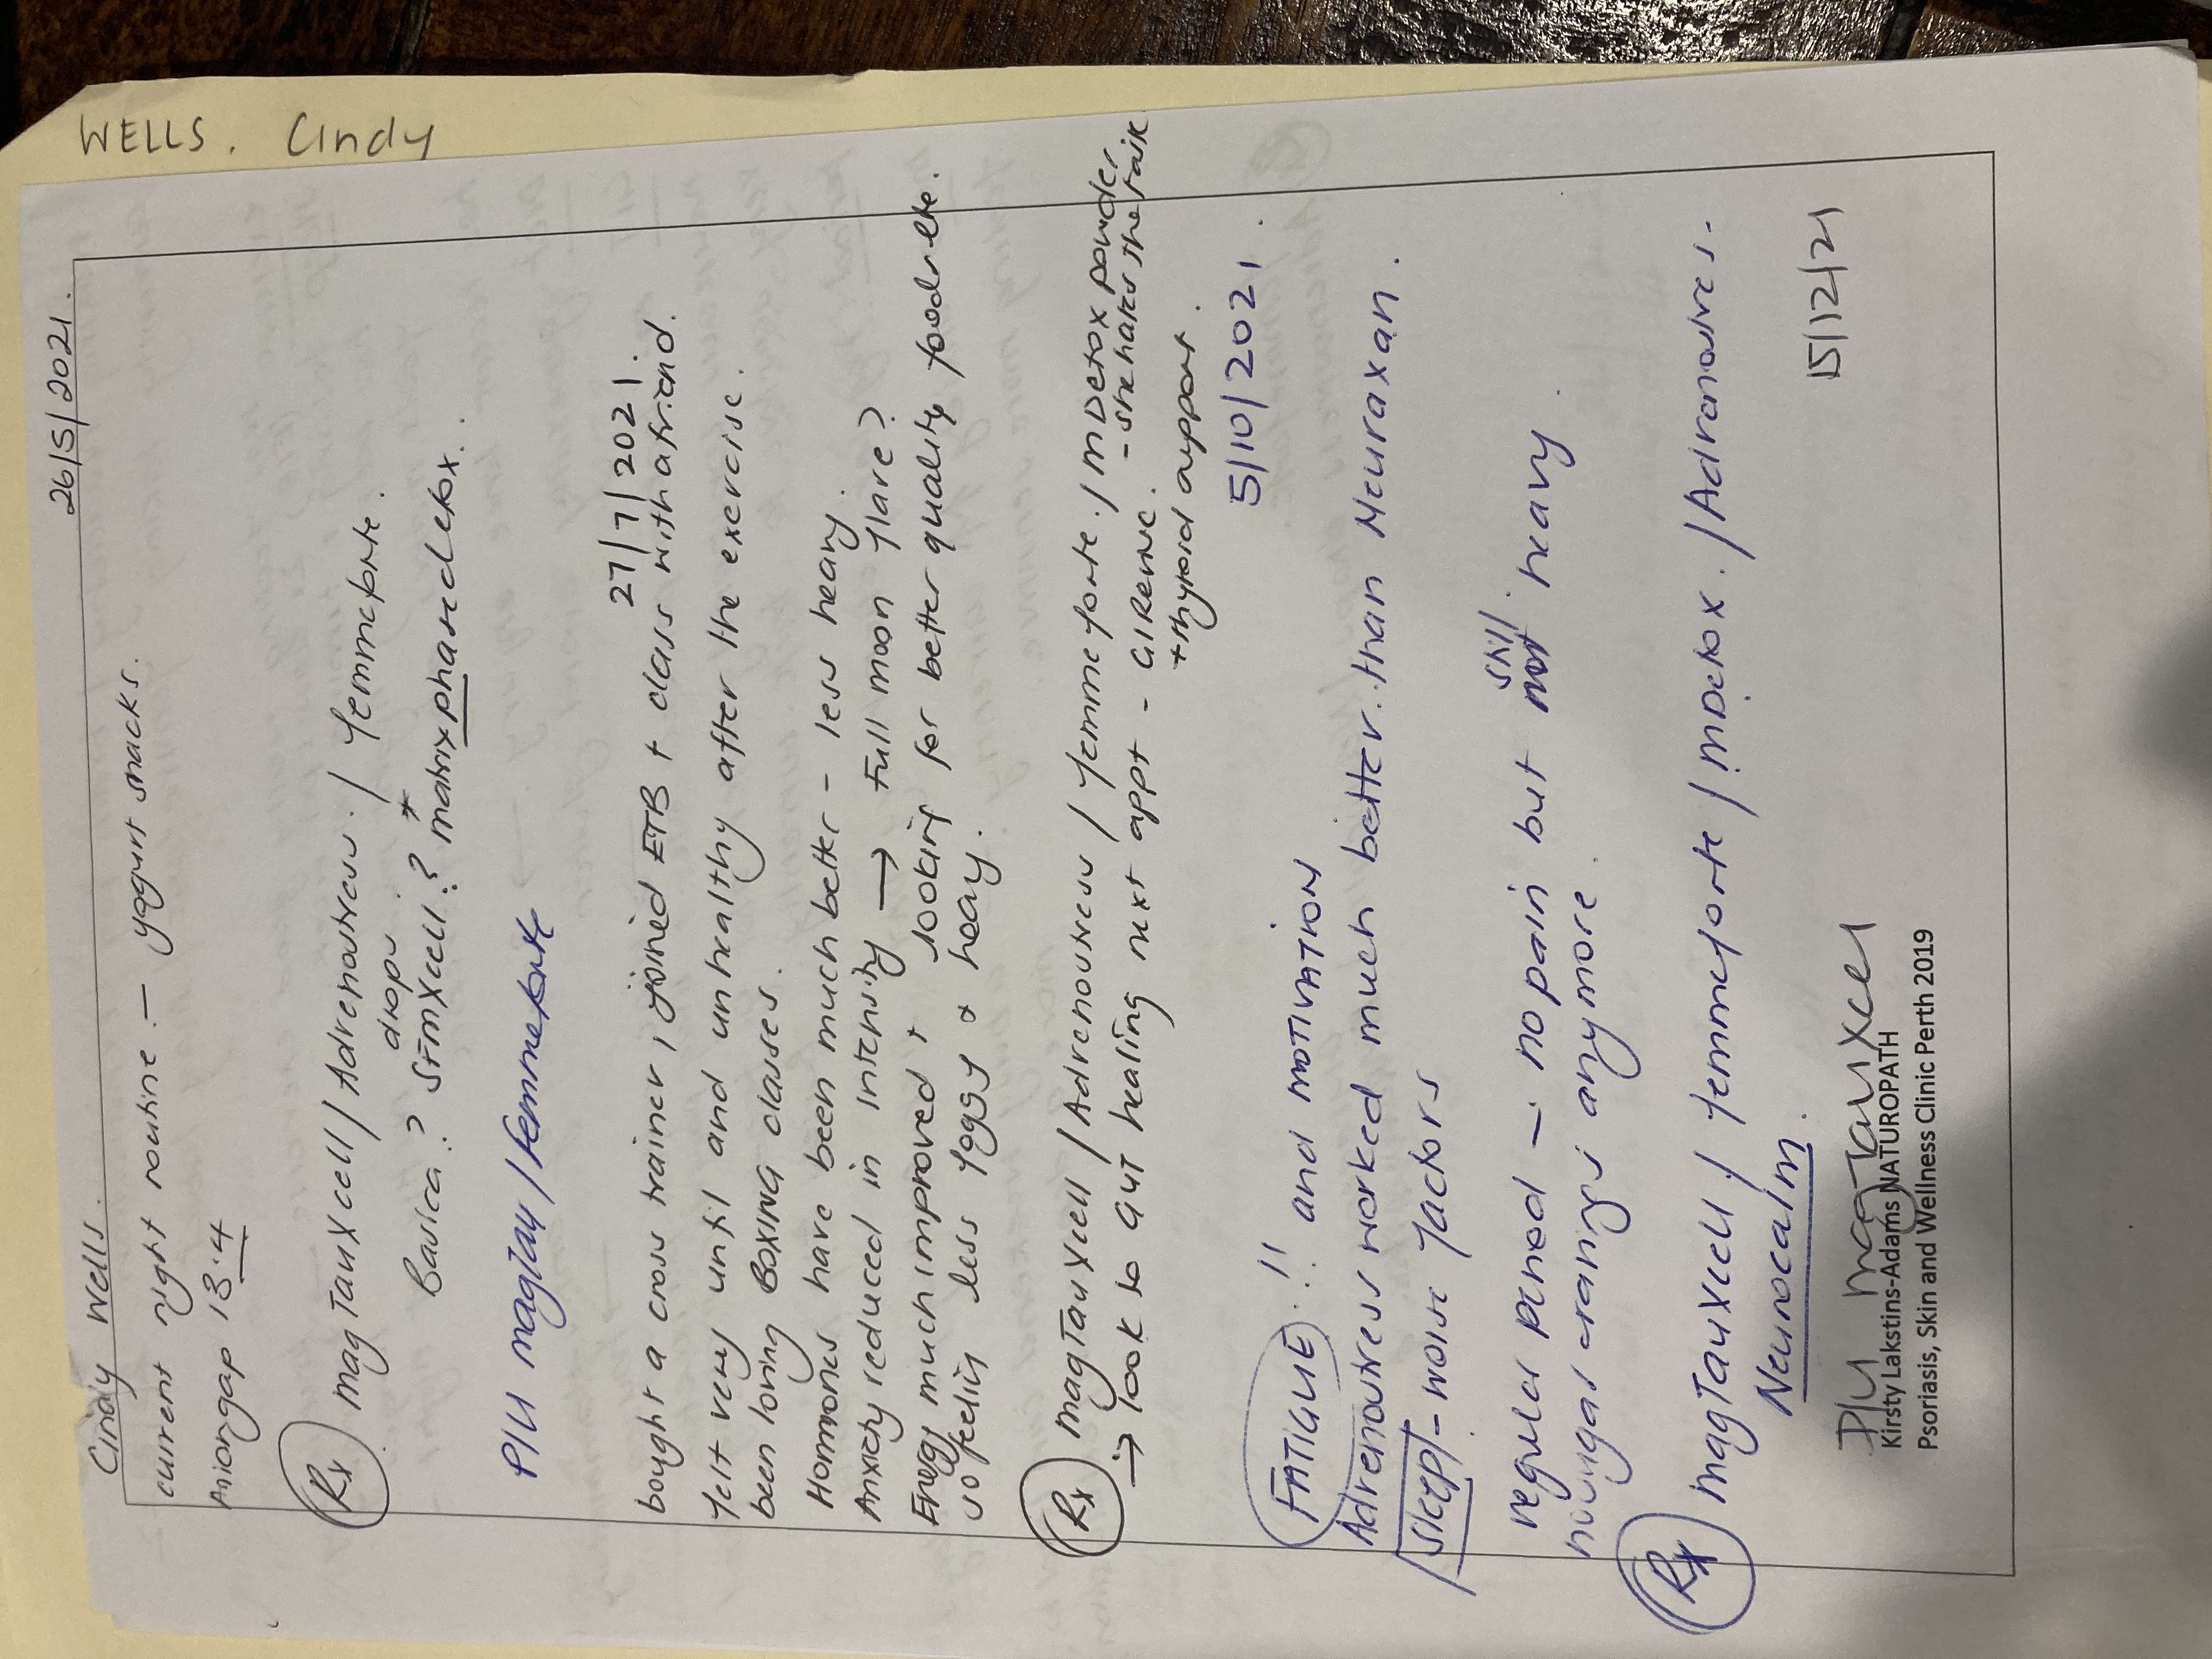 WELLS. Cindy
Cindy Wells. 26/5/2021.
current night routine. - yogurt snacks.
Aniongap 13.4
Rx magTauXcell / Adrenostress. / femmeforte.
drops +
Basica? STmXcell? matrixphasedetox.
P/U magTay / femmeforte
27/7/2021.
bought a cross trainer, joined ETB + class with a friend.
felt very unfit and unhealthy after the exercise.
been loving BOXING classes.
Hormones have been much better - less heavy.
Anxiety reduced in intensity → full moon flare?
Energy much improved + looking for better quality foods etc.
so feeling less foggy & heavy.
Rx magTauXcell / Adrenostress / femmeforte. / mDetox powder.
- she hates the taste
→ look to GUT healing next appt - GIRenve.
+ thyroid support.
5/10/2021.
FATIGUE.!! and MOTIVATION
Adrenostress worked much better than Neuraxan.
SLEEP - worse factors
regular period - no pain but still not heavy.
no sugar cravings anymore.
Rx magTauXcell / femmeforte / mDetox. / Adrenostress.
Neurocalm.
15/12/21
P/U magTauXcell
Kirsty Lakstins-Adams NATUROPATH
Psoriasis, Skin and Wellness Clinic Perth 2019